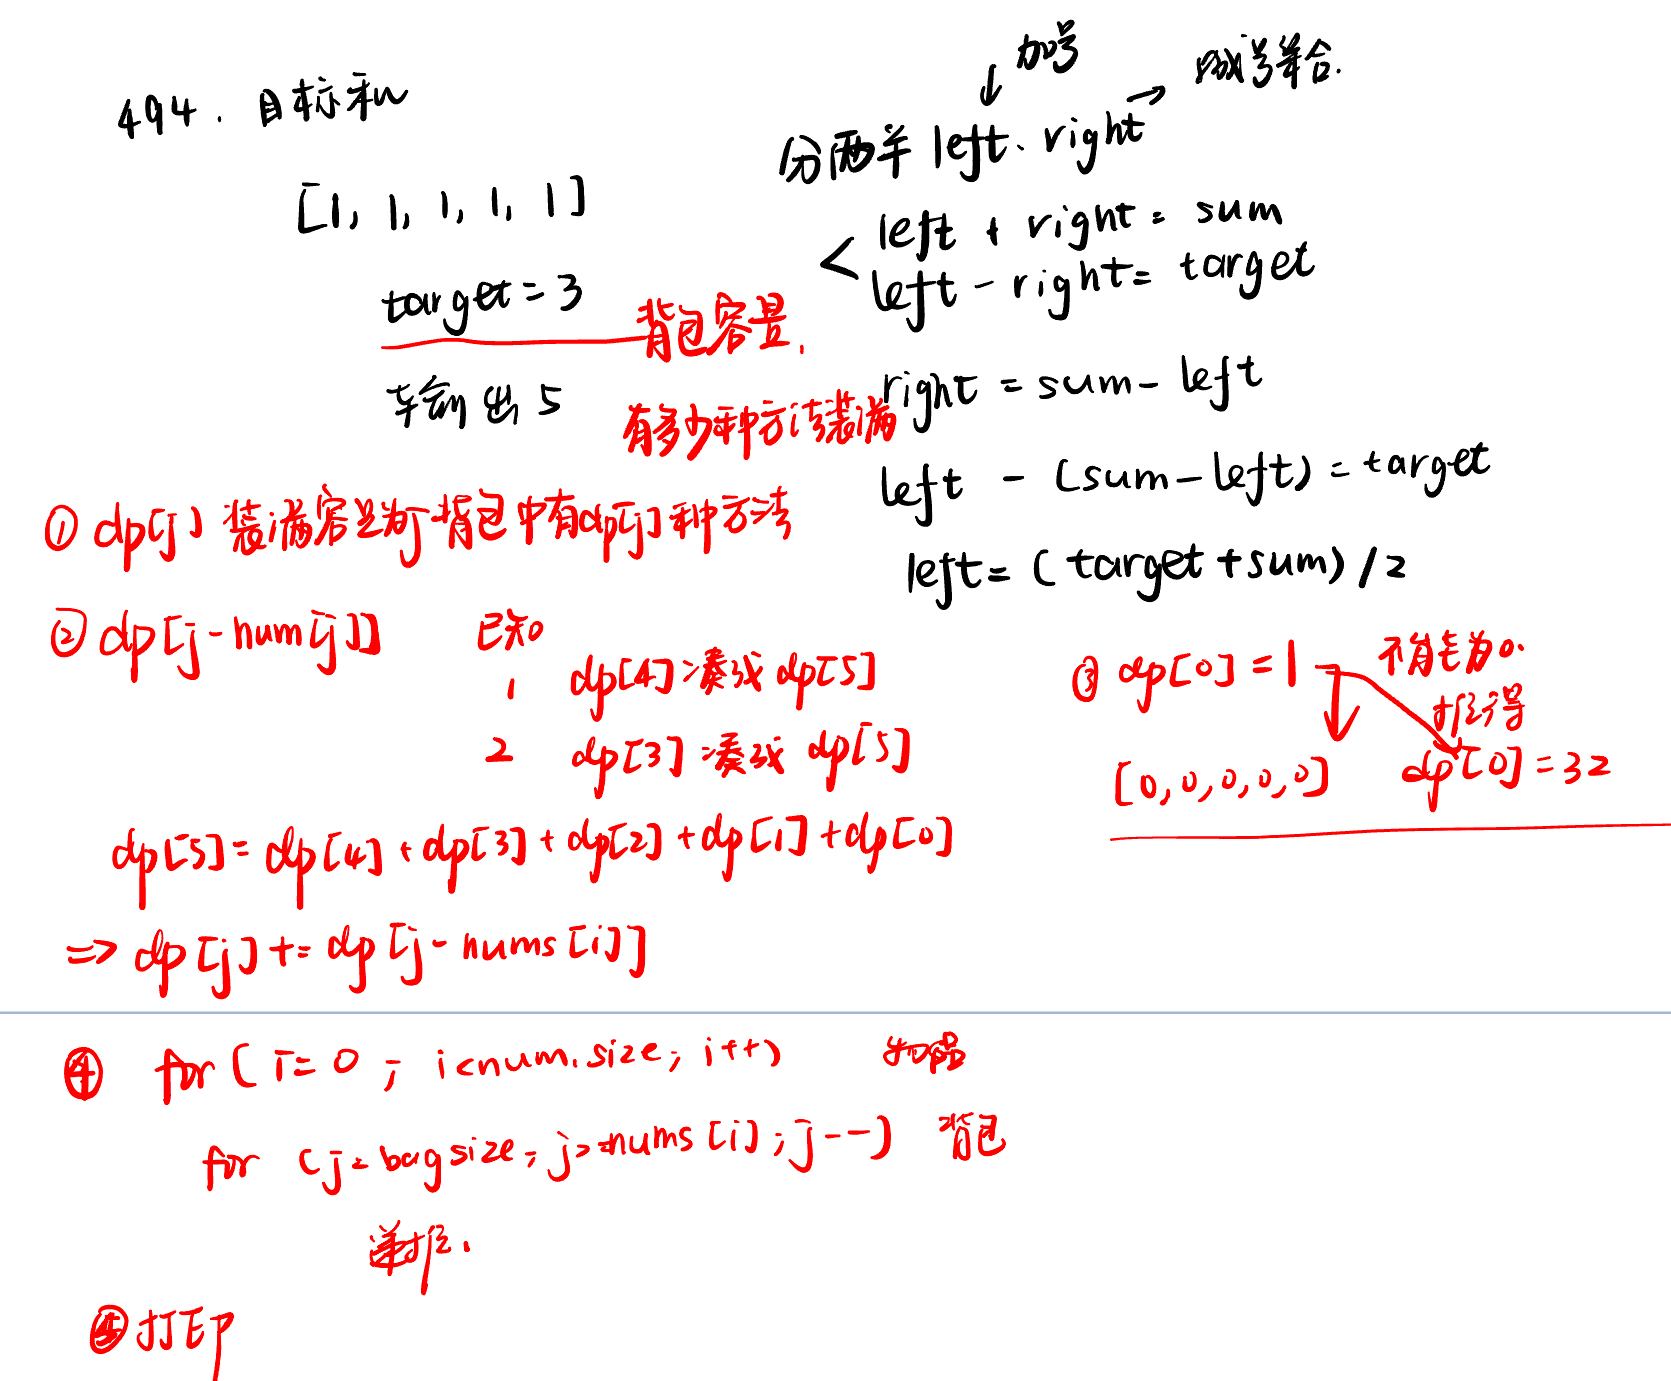 494. 目标和
[1, 1, 1, 1, 1]
target = 3
背包容量.
输出 5
有多少种方法装满
加号
减号集合.
分两半 left、right
left + right = sum
left - right = target
right = sum - left
left - (sum - left) = target
left = (target + sum) / 2
① dp[j] 装满容量为j背包中有dp[j]种方法
② dp[j - num[j]]
已知
1 dp[4] 凑成 dp[5]
2 dp[3] 凑成 dp[5]
dp[5] = dp[4] + dp[3] + dp[2] + dp[1] + dp[0]
=> dp[j] += dp[j - nums[i]]
③ dp[0] = 1
不能为0.
推导得
[0, 0, 0, 0, 0]
dp[0] = 32
④ for (i = 0; i < num.size; i++) 物品
for (j = bagsize; j >= nums[i]; j--) 背包
递推.
⑤ 打印